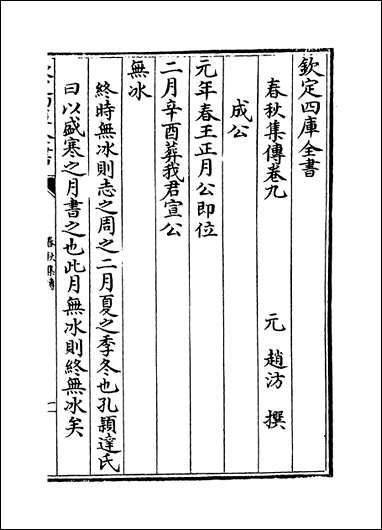 欽定四庫全書
春秋集傳卷九
元 趙汸 撰
成公
元年春王正月公即位
二月辛酉葬我君宣公
無冰
終時無冰則志之周之二月夏之季冬也孔穎達氏
曰以盛寒之月書之也此月無冰則終無冰矣
春秋集傳